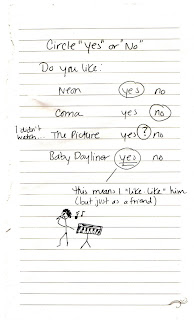 Circle "yes" or "No"
Do you like:
Neon yes no
Coma yes no
I didn't
watch... The Picture yes ? no
Baby Dayliner yes no
this means I "like-like" him
(but just as a friend)